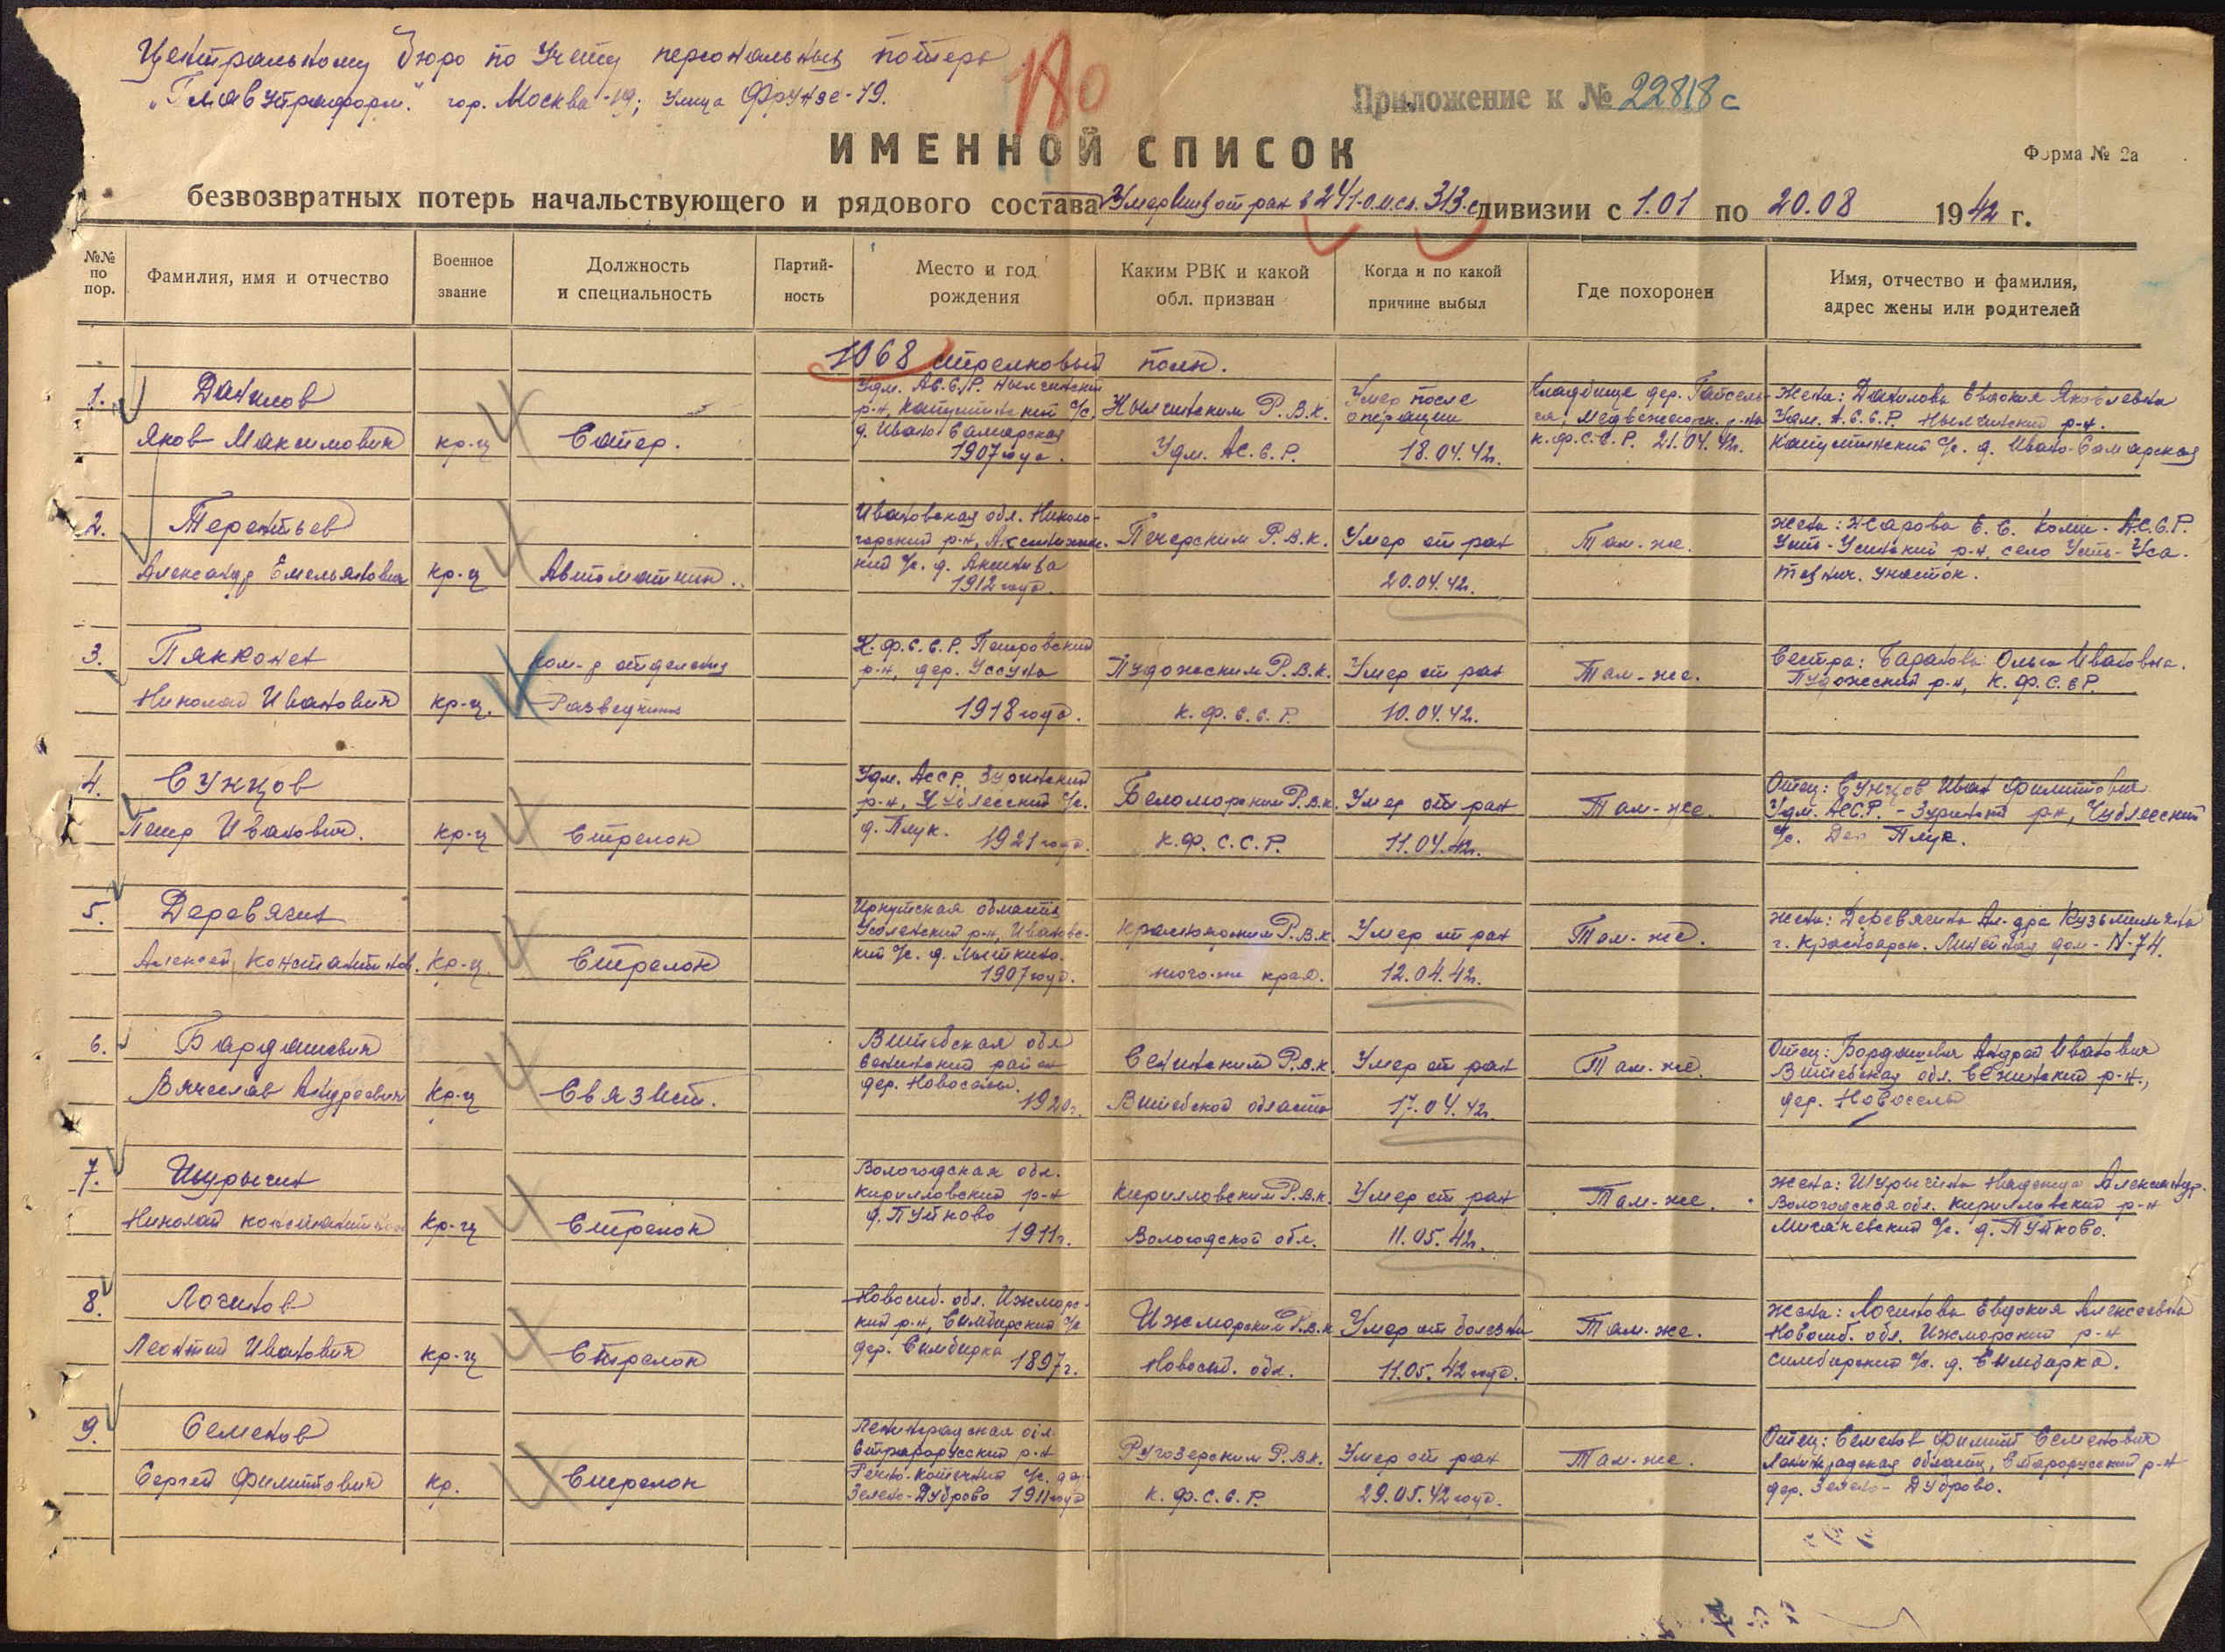 Центральному бюро по учету персональных потерь
"Главупраформ." гор. Москва-19; улица Фрунзе-19.
180
Приложение к № 22818с
ИМЕННОЙ СПИСОК
Форма № 2а
безвозвратных потерь начальствующего и рядового состава Умерших от ран в 241 о.м.с.б. 313 с дивизии с 1.01 по 20.08 1942 г.
№№ по пор.
Фамилия, имя и отчество
Военное звание
Должность и специальность
Партийность
Место и год рождения
Каким РВК и какой обл. призван
Когда и по какой причине выбыл
Где похоронен
Имя, отчество и фамилия, адрес жены или родителей
1068 стрелковый полк.
1.
Данилов
Яков Максимович
кр-ц
Сапер.
Удм. Ас.С.Р. Нылгинский
р-н, Капустинский с/с,
д. Ивано-Самарская
1907 года.
Нылгинским Р.В.К.
Удм. АС.С.Р.
Умер после
операции
18.04.42г.
Кладбище дер. Гайсель-
ся, Медвежьегорск. р-на
К.Ф.С.С.Р. 21.04.42г.
Жена: Данилова Евдокия Яковлевна
Удм. А.С.С.Р. Нылгинский р-н.
Капустинский с/с. д. Ивано-Самарская
2.
Терентьев
Александр Емельянович
кр-ц
Автоматчик.
Ивановская обл. Николо-
горский р-н,
кий с/с. д.
1912 года.
Печерским Р.В.К.
Умер от ран
20.04.42г.
Там-же.
Жена: Жарова Е.С. Коми-АС.С.Р.
Усть-Усинский р-н, село Усть-Уса.
участок.
3.
Пякконен
Николай Иванович
кр-ц.
Ком-р отделения
Разведчик
К.Ф.С.С.Р. Петровский
р-н, дер. Уссуна
1918 года.
Пудожским Р.В.К.
К.Ф.С.С.Р.
Умер от ран
10.04.42г.
Там-же.
Сестра: Баранова Ольга Ивановна.
Пудожский р-н, К.Ф.С.С.Р.
4.
Сунцов
Петр Иванович.
кр-ц
Стрелок
Удм. АССР. Зуринский
р-н, Чублесский с/с.
д. Плук. 1921 года.
Беломорским Р.В.К.
К.Ф.С.С.Р.
Умер от ран
11.04.42г.
Там-же.
Отец: Сунцов Иван Филиппович
Удм. АС.С.Р. - Зуринский р-н, Чублесский
с/с. Дер Плук.
5.
Деревягин
Алексей Константинов.
Кр-ц.
Стрелок
Иркутская область
Усольский р-н, Ивановс-
кий с/с. д.
1907 года.
Р.В.К.
края.
Умер от ран
12.04.42г.
Там-же.
Жена: Деревягина Ал-дра Кузьминична
г. Красноярск. Линейная дом-N-74.
6.
Бардашевич
Вячеслав Андреевич
Кр-ц
Связист.
Витебская обл
Сенинский район
дер. Новоселы.
1920г.
Сенинским Р.В.К.
Витебской области
Умер от ран
17.04.42г.
Там-же.
Отец: Бардашевич Андрей Иванович
Витебская обл. Сенинский р-н.,
дер. Новоселы
7.
Шурыгин
Николай Константинович
Кр-ц
Стрелок
Вологодская обл.
Кирилловский р-н
д. Пуйково
1911г.
Кирилловским Р.В.К.
Вологодской обл.
Умер от ран
11.05.42г.
Там-же.
Жена: Шурыгина Надежда Александр.
Вологодская обл. Кирилловский р-н
Мигачевский с/с. д. Пуйково.
8.
Логинов
Леонтий Иванович
кр-ц
Стрелок
Новосиб. обл. Ижморс-
кий р-н, Симбирский с/с
дер. Симбирка
1897г.
Ижморский Р.В.К
Новосиб. обл.
Умер от болезни
11.05.42 года.
Там-же.
Жена: Логинова Евдокия Алексеевна
Новосиб. обл. Ижморский р-н
Симбирский с/с. д. Симбирка.
9.
Семенов
Сергей Филиппович
Кр.
Стрелок
Ленинградская обл
Старорусский р-н
с/с. дер.
Зелено-Дуброво 1911 года
Ругозерским Р.В.К.
К.Ф.С.С.Р.
Умер от ран
29.05.42 года.
Там-же.
Отец: Семенов Филипп Семенович
Ленинградская область, Старорусский р-н
дер. Зелено-Дуброво.